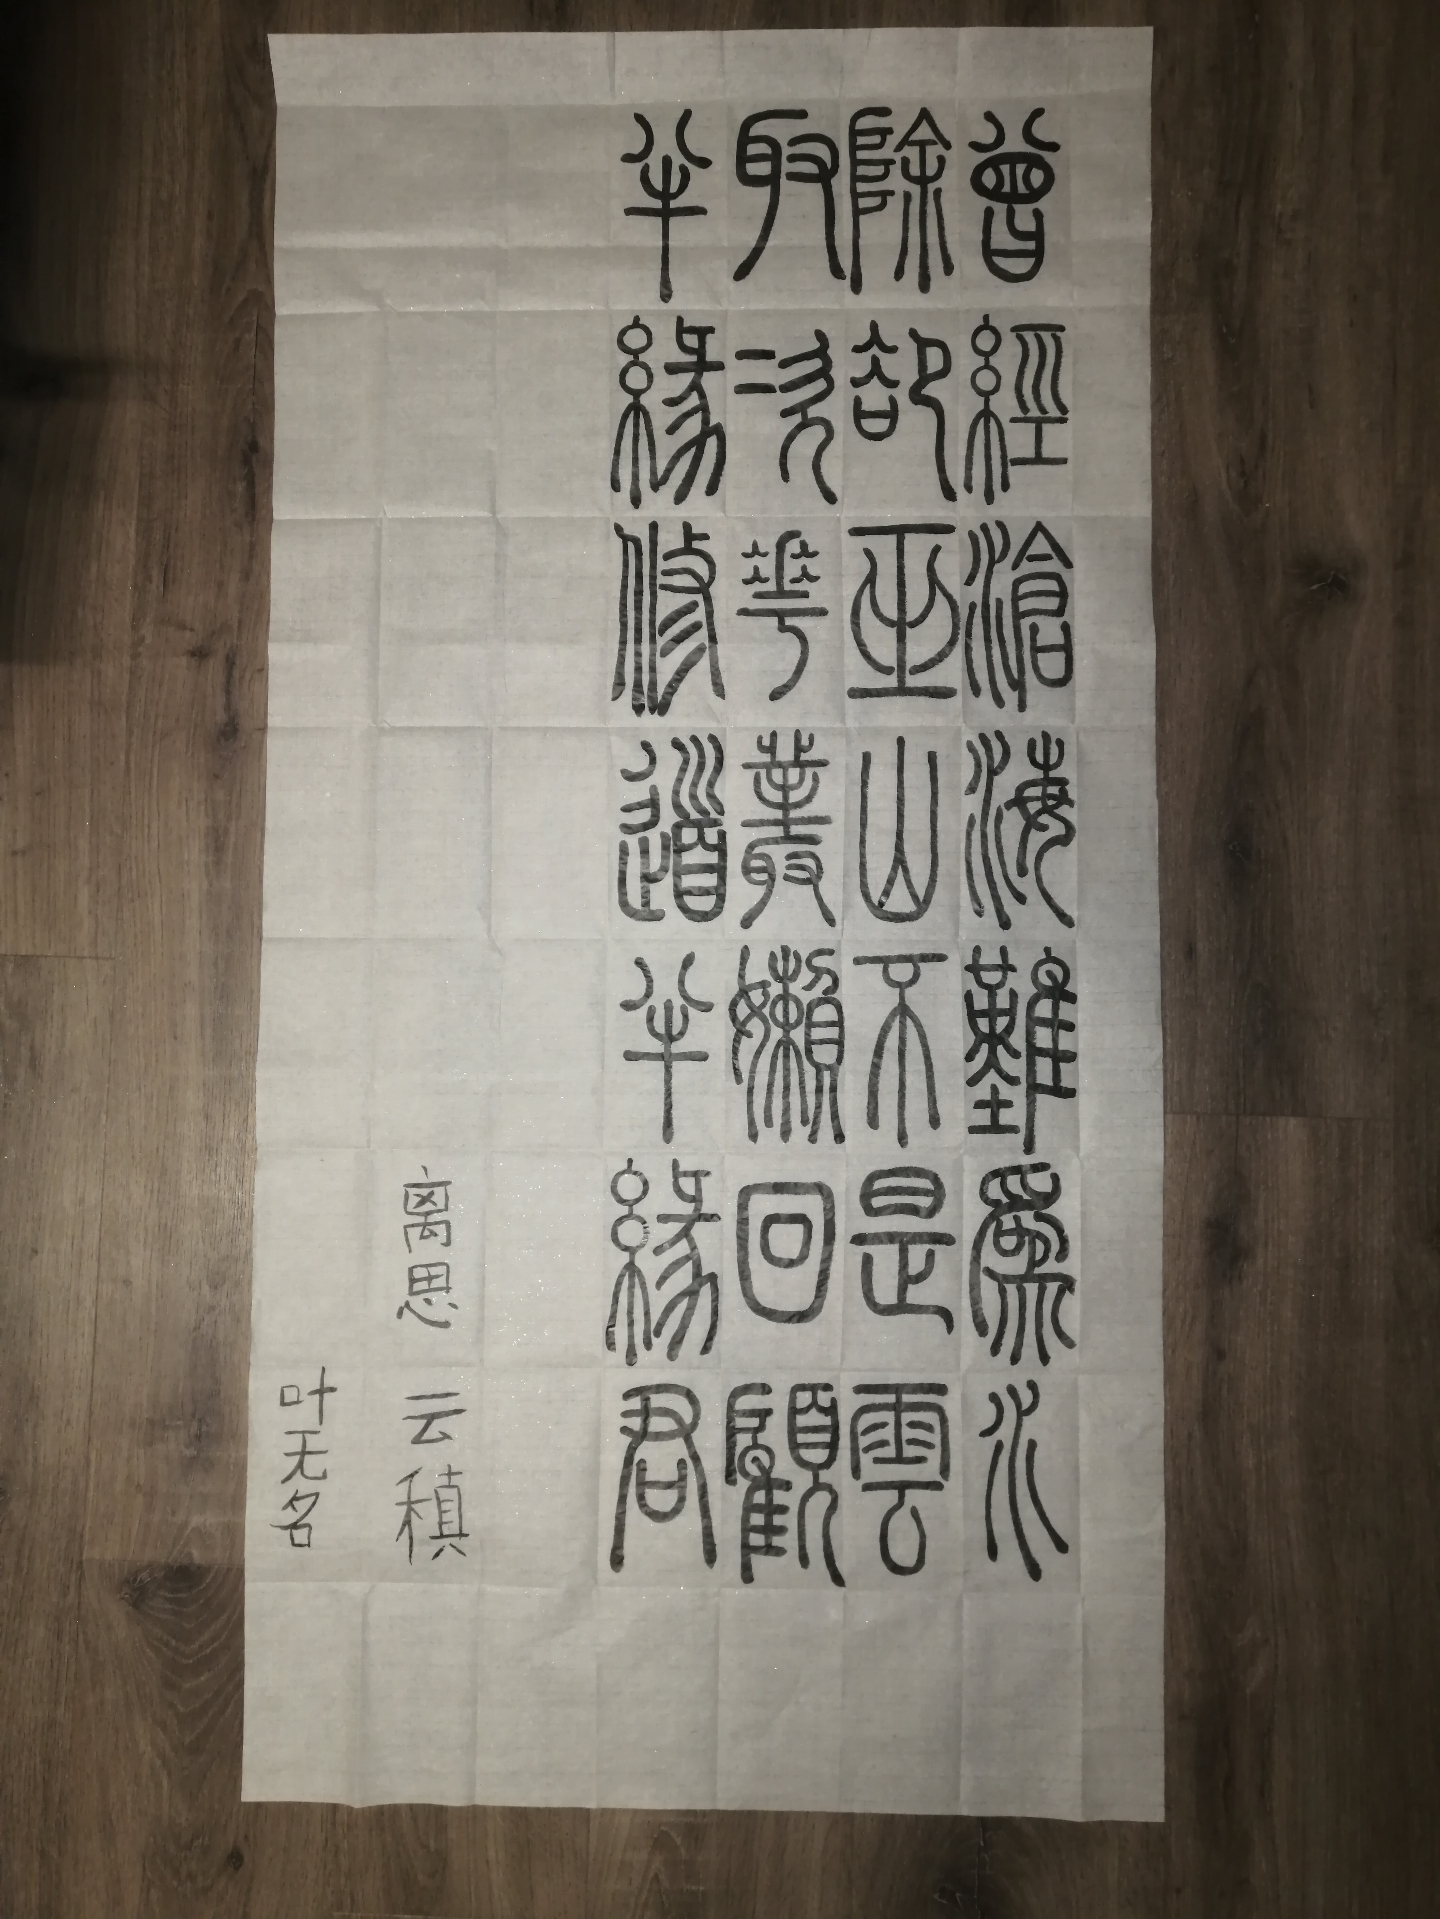 曾經滄海難為水
除卻巫山不是雲
取次花叢懶回顧
半緣修道半緣君
离思 云稹
叶无名